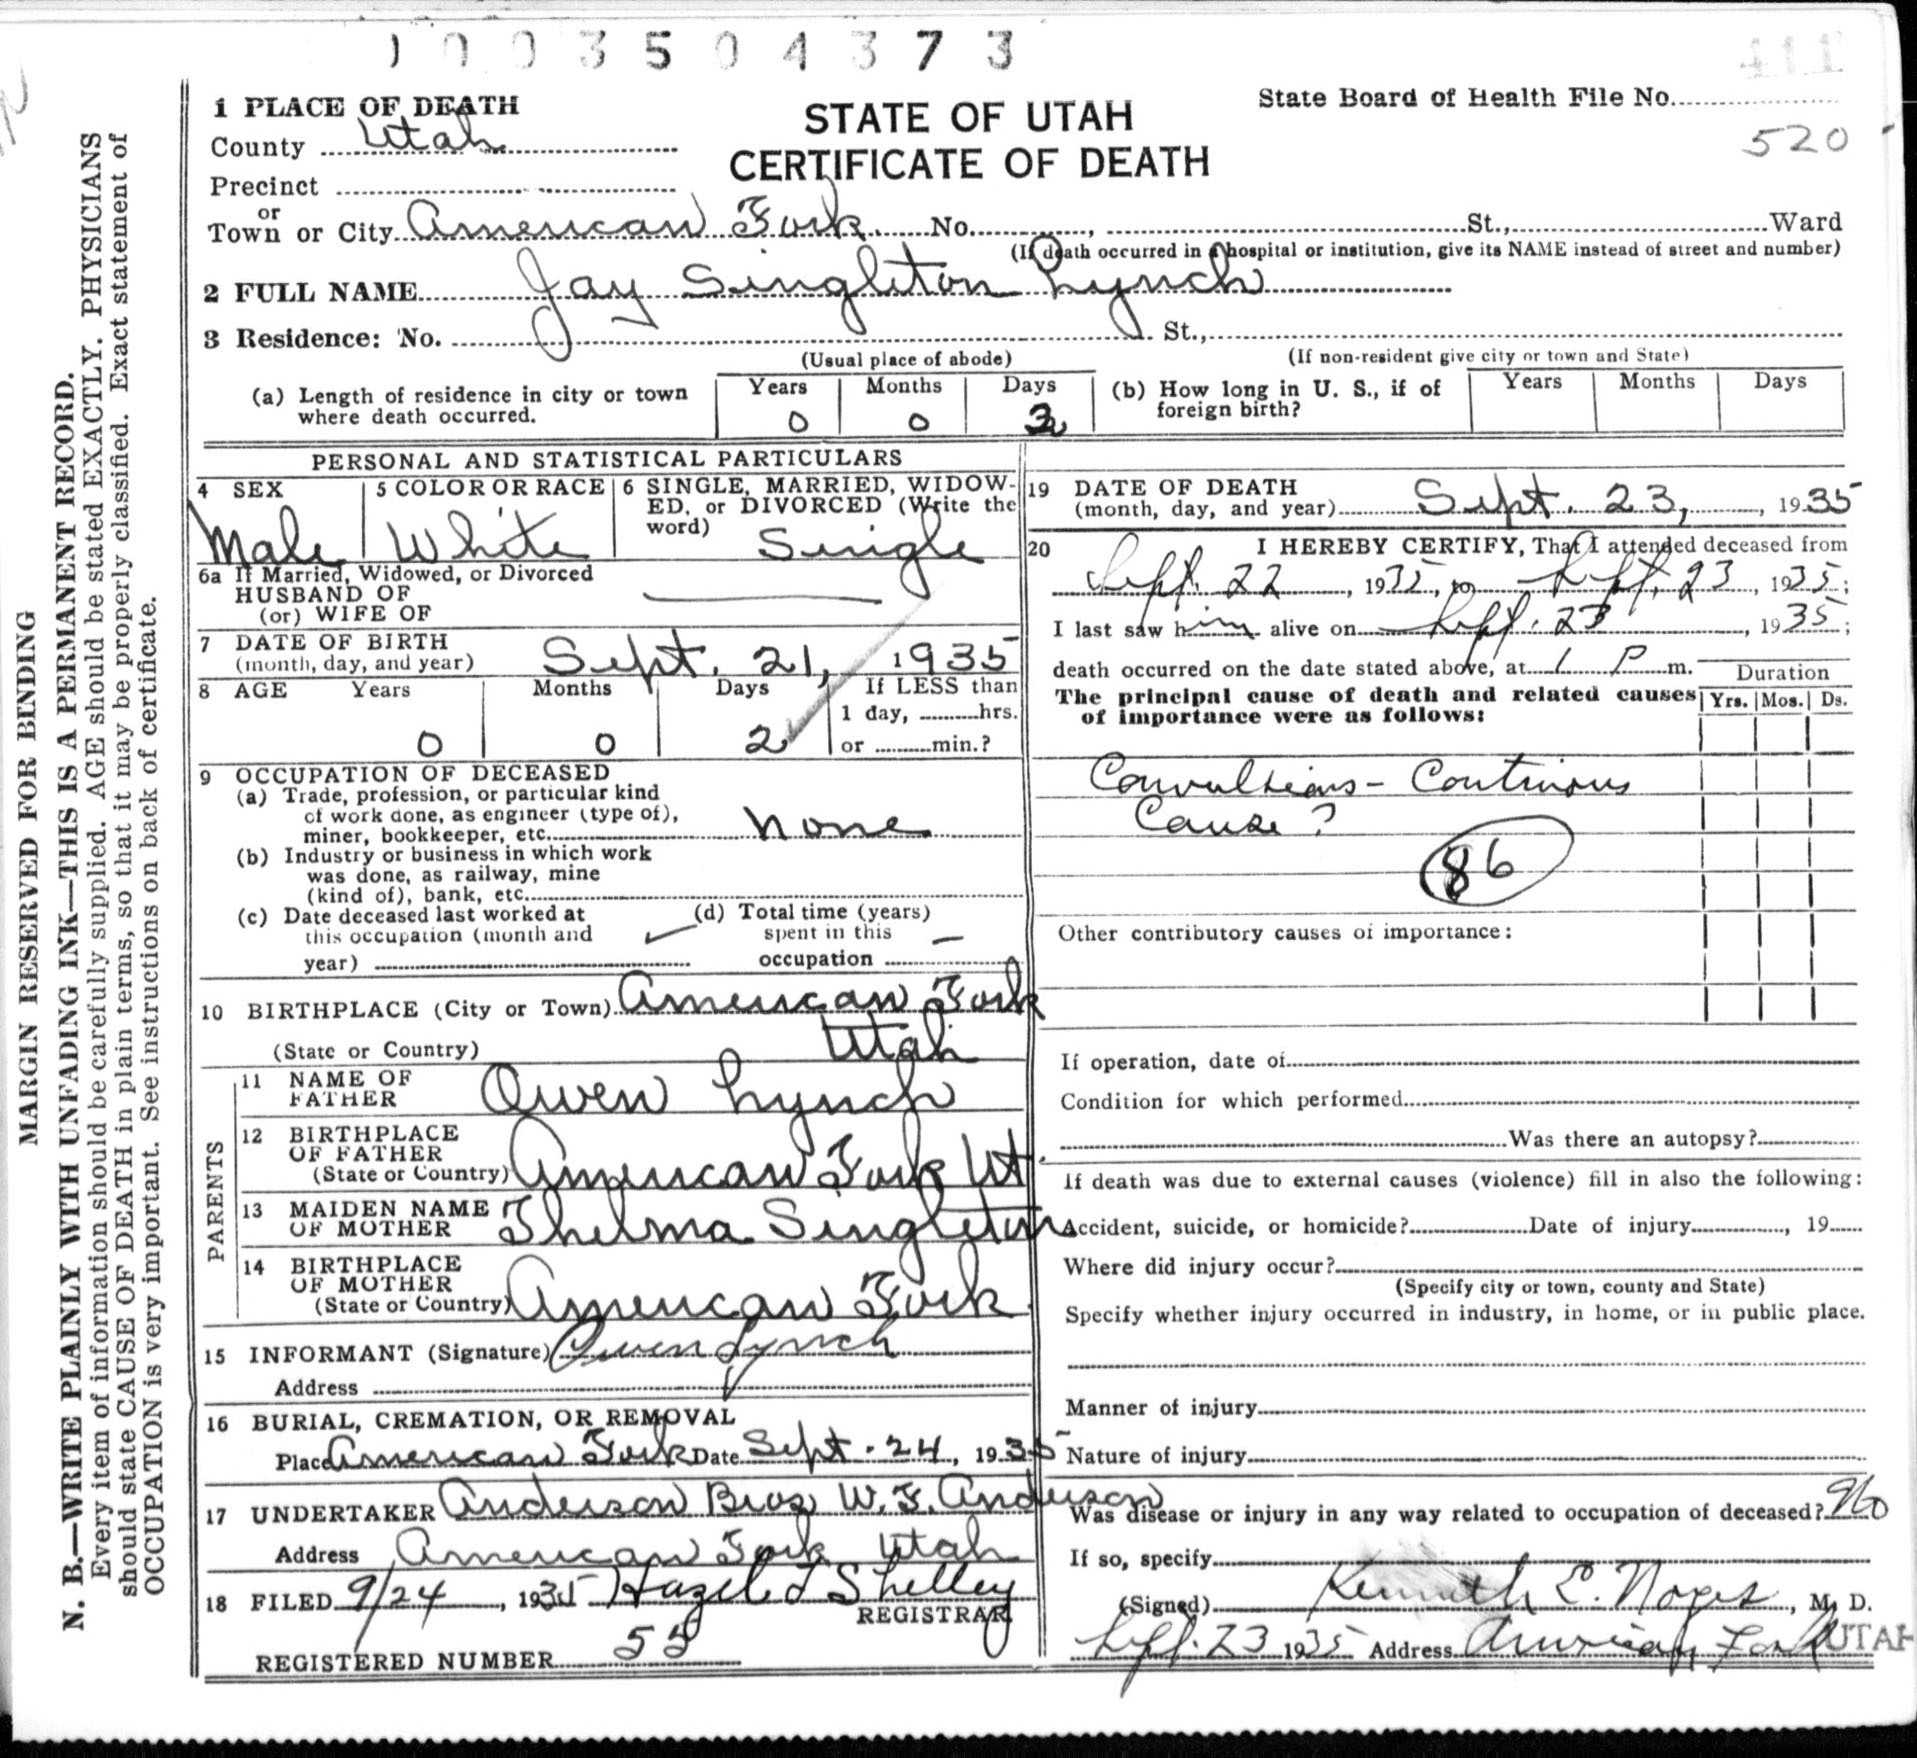 1003504373
411
1 PLACE OF DEATH
STATE OF UTAH
CERTIFICATE OF DEATH
State Board of Health File No.
520
County Utah
Precinct
or
Town or City American Fork No. , St., Ward
(If death occurred in a hospital or institution, give its NAME instead of street and number)
2 FULL NAME Jay Singleton Lynch
3 Residence: No. St.,
(Usual place of abode) (If non-resident give city or town and State)
(a) Length of residence in city or town where death occurred. Years 0 Months 0 Days
(b) How long in U. S., if of foreign birth? Years Months Days
PERSONAL AND STATISTICAL PARTICULARS
4 SEX Male
5 COLOR OR RACE White
6 SINGLE, MARRIED, WIDOW-
ED, or DIVORCED (Write the
word) Single
6a If Married, Widowed, or Divorced
HUSBAND OF
(or) WIFE OF
7 DATE OF BIRTH
(month, day, and year) Sept. 21, 1935
8 AGE Years Months Days If LESS than
1 day, hrs.
0 0 2 or min.?
9 OCCUPATION OF DECEASED
(a) Trade, profession, or particular kind
of work done, as engineer (type of),
miner, bookkeeper, etc. none
(b) Industry or business in which work
was done, as railway, mine
(kind of), bank, etc.
(c) Date deceased last worked at
this occupation (month and
year)
(d) Total time (years)
spent in this
occupation
10 BIRTHPLACE (City or Town) American Fork
(State or Country) Utah
PARENTS
11 NAME OF
FATHER Owen Lynch
12 BIRTHPLACE
OF FATHER
(State or Country) American Fork Ut.
13 MAIDEN NAME
OF MOTHER Thelma Singleton
14 BIRTHPLACE
OF MOTHER
(State or Country) American Fork
15 INFORMANT (Signature) Owen Lynch
Address
16 BURIAL, CREMATION, OR REMOVAL
Place American Fork Date Sept. 24, 1935
17 UNDERTAKER Anderson Bros W. F. Anderson
Address American Fork Utah
18 FILED 9/24, 1935 Hazel J Shelley
REGISTRAR
REGISTERED NUMBER 55
19 DATE OF DEATH
(month, day, and year) Sept. 23, , 1935
20 I HEREBY CERTIFY, That I attended deceased from
Sept. 22, 1935, to Sept. 23, 1935;
I last saw him alive on Sept. 23, 1935;
death occurred on the date stated above, at 1 P m.
Duration
The principal cause of death and related causes
of importance were as follows:
Yrs. Mos. Ds.
Convulsions - Continous
Cause?
86
Other contributory causes of importance:
If operation, date of
Condition for which performed
Was there an autopsy?
If death was due to external causes (violence) fill in also the following:
Accident, suicide, or homicide? Date of injury , 19
Where did injury occur?
(Specify city or town, county and State)
Specify whether injury occurred in industry, in home, or in public place.
Manner of injury
Nature of injury
Was disease or injury in any way related to occupation of deceased? No
If so, specify
(Signed) Kenneth E. Noyes, M. D.
Sept. 23 1935 Address American Fork UTAH
MARGIN RESERVED FOR BINDING
N. B.—WRITE PLAINLY WITH UNFADING INK—THIS IS A PERMANENT RECORD.
Every item of information should be carefully supplied. AGE should be stated EXACTLY. PHYSICIANS
should state CAUSE OF DEATH in plain terms, so that it may be properly classified. Exact statement of
OCCUPATION is very important. See instructions on back of certificate.